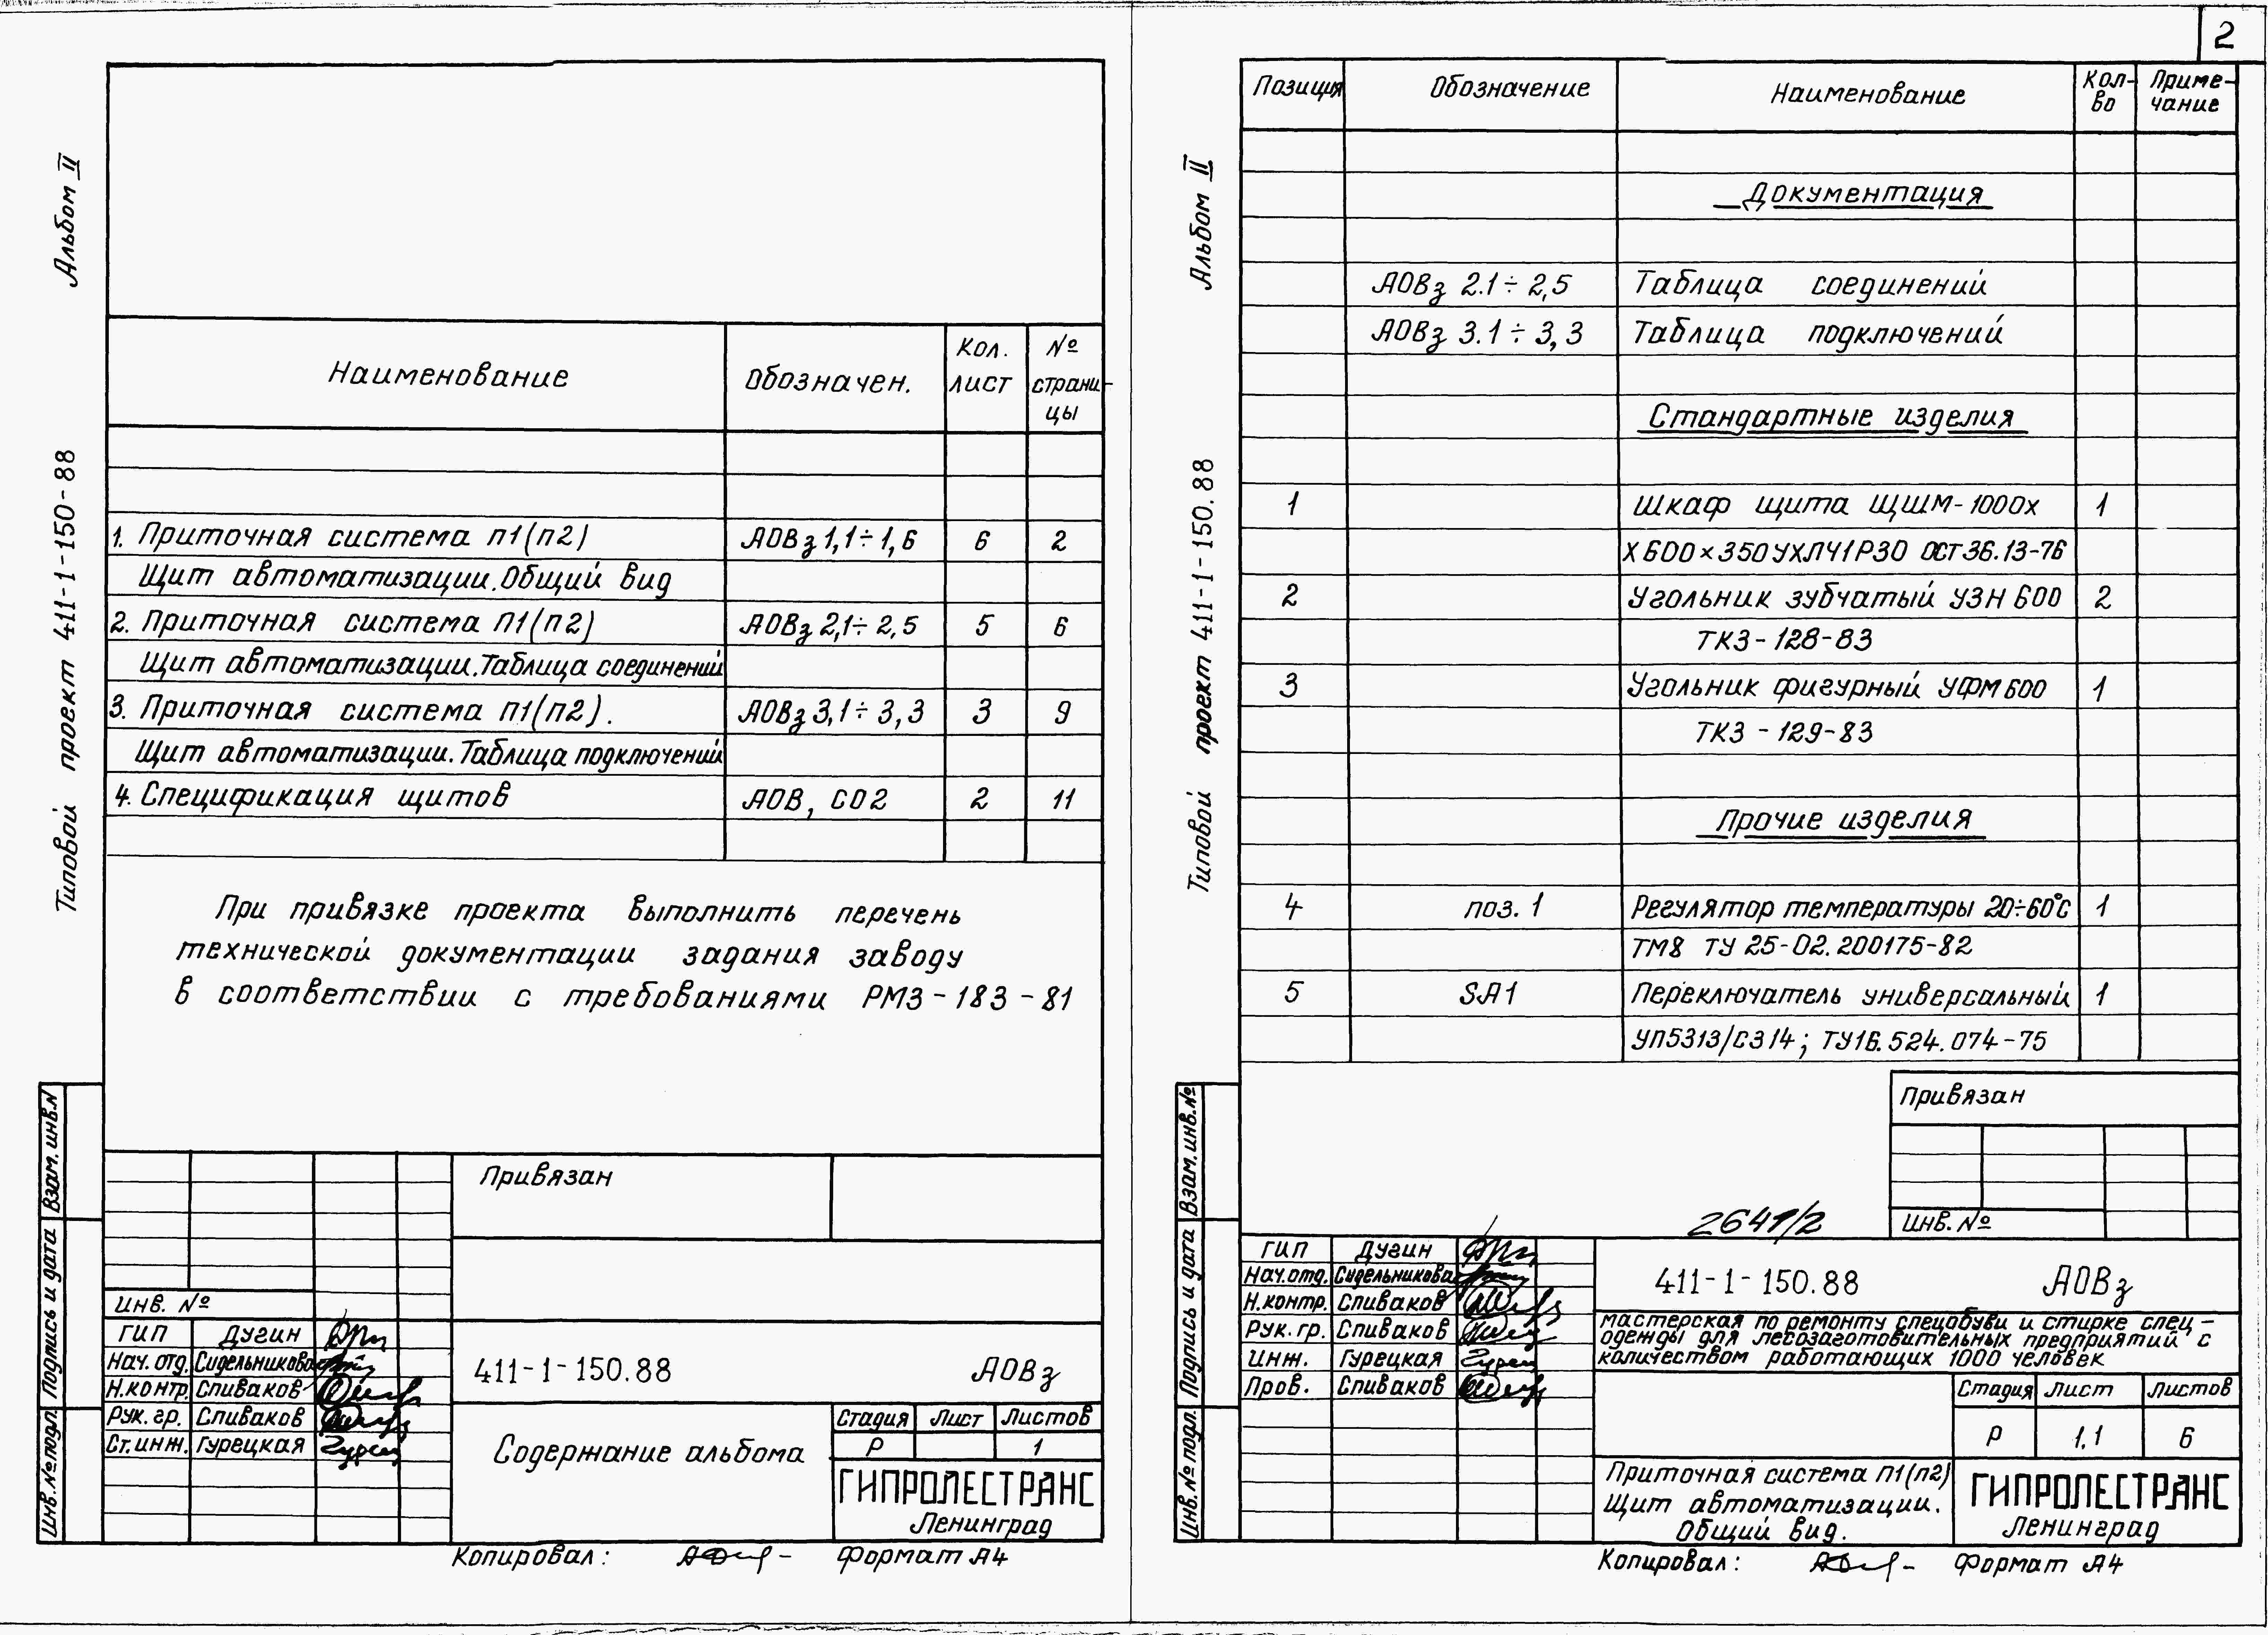 2
Альбом II
Типовой проект 411-1-150-88
Наименование
Обозначен.
Кол. лист
№ страни-
цы
1. Приточная система П1(П2) АОВз 1,1÷1,6 6 2
Щит автоматизации. Общий вид
2. Приточная система П1(П2) АОВз 2,1÷2,5 5 6
Щит автоматизации. Таблица соединений
3. Приточная система П1(П2). АОВз 3,1÷3,3 3 9
Щит автоматизации. Таблица подключений
4. Спецификация щитов АОВ, СО2 2 11
При привязке проекта выполнить перечень
технической документации задания заводу
в соответствии с требованиями РМ3-183-81
Взам. инв.N
Подпись и дата
Инв. № подл.
Привязан
Инв. №
ГИП Дугин
Нач. отд. Сидельникова
Н.контр. Спиваков
Рук. гр. Спиваков
Ст. инж. Гурецкая
411-1-150.88 АОВз
Содержание альбома
Стадия Лист Листов
Р 1
ГИПРОЛЕСТРАНС
Ленинград
Копировал: Формат А4
Альбом II
Типовой проект 411-1-150.88
Позиция Обозначение Наименование Кол-
во Приме-
чание
Документация
АОВз 2.1÷2,5 Таблица соединений
АОВз 3.1÷3,3 Таблица подключений
Стандартные изделия
1 Шкаф щита ЩШМ-1000х 1
Х600×350УХЛЧ1Р30 ОСТ36.13-76
2 Угольник зубчатый УЗН 600 2
ТК3-128-83
3 Угольник фигурный УФМ600 1
ТК3-129-83
Прочие изделия
4 поз. 1 Регулятор температуры 20÷60°С 1
ТМ8 ТУ 25-02.200175-82
5 SA1 Переключатель универсальный 1
УП5313/С314; ТУ16.524.074-75
Привязан
Инв. №
2641/2
Взам. инв.№
Подпись и дата
Инв. № подл.
ГИП Дугин
Нач. отд. Сидельникова
Н.контр. Спиваков
Рук. гр. Спиваков
Инж. Гурецкая
Пров. Спиваков
411-1-150.88 АОВз
мастерская по ремонту спецобуви и стирке спец-
одежды для лесозаготовительных предприятий с
количеством работающих 1000 человек
Стадия Лист Листов
Р 1,1 6
Приточная система П1(П2)
Щит автоматизации.
Общий вид.
ГИПРОЛЕСТРАНС
Ленинград
Копировал: Формат А4